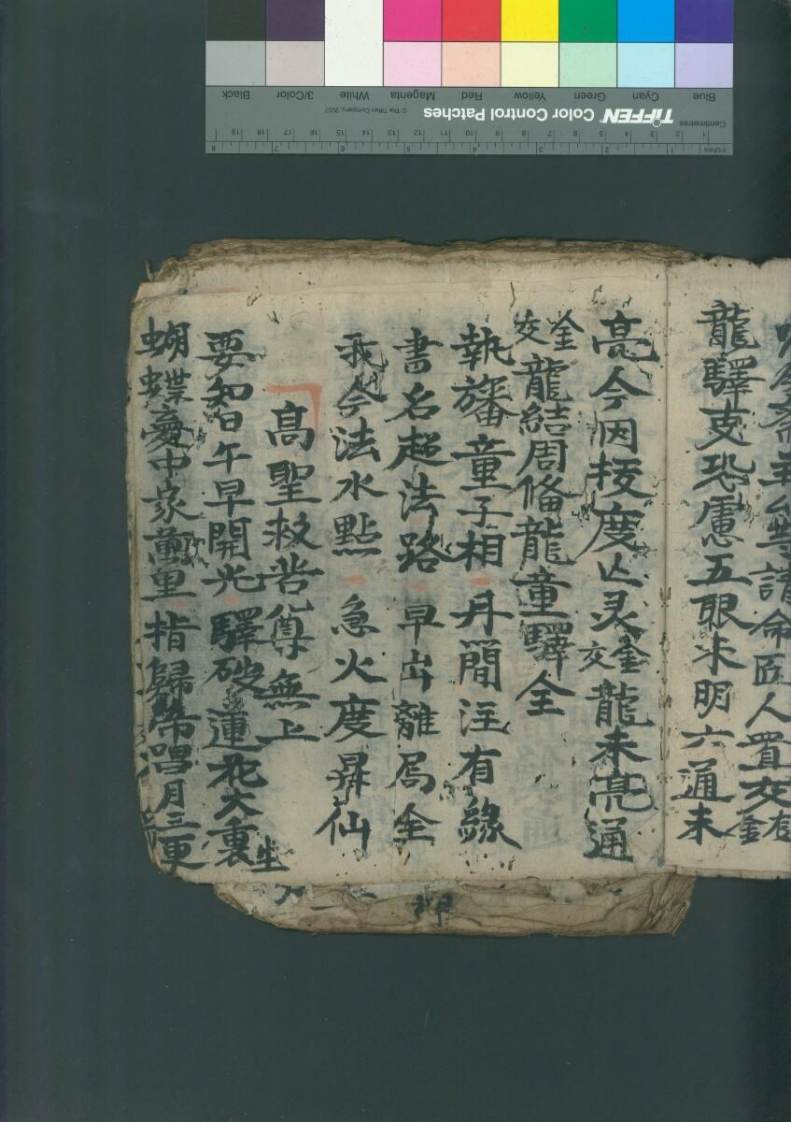 齋主
請命匠人置交
龍驛 恐慮五眼未明六通未
亮今因授度亡灵金交龍未亮通
金交龍結周俻龍童驛全
執旛童子相 丹簡注有緣
書名超法路 早出離局全
我今法水點 急火度昇仙
高聖救苦尊無上
要知日午早開光 驛破蓮花大裏生
蝴蝶 中家 里 指歸 唱月三更
Black 3/Color White Magenta Red Yellow Green Cyan Blue
© The Tiffen Company, 2007
TIFFEN Color Control Patches
Centimetres
Inches